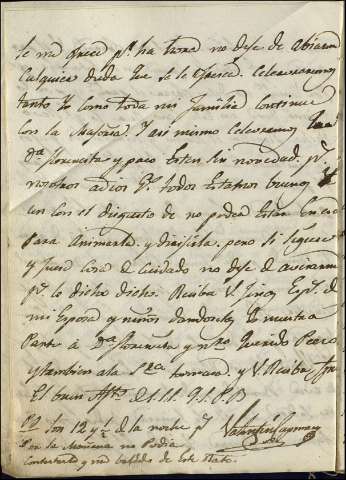 se me ofrece pr. ha hora no deje de abisarme
Cualquiera duda que se le ofresca. Celebraremos
tanto Yo como toda mi familia continue
con la Mejoria. Y asi mismo Celebramos que
Da. Florencita y Paco esten sin novedad. pr.
nosotros adios gs. todos estamos buenos
aun con el disgusto de no poder estar en esa
para Animarla y dirijirla. pero si sigue
y fuese cosa de Cuidado no deje de avisarme
pr. lo dicho dicho. Reciba V. finos Esps. de
mi Esposa y niños dandoselos de nuestra
Parte á Da. Florencita y nro. Querido Paco
y tambien ala Sra. y V. Reciba
El buen Afto. de S.S.S. Q.S.M.B
Pd. son 12 y ½ de la noche pr. Valentin
q. en la Mañana no Podia
Contestarle y me balgo de este Rato.